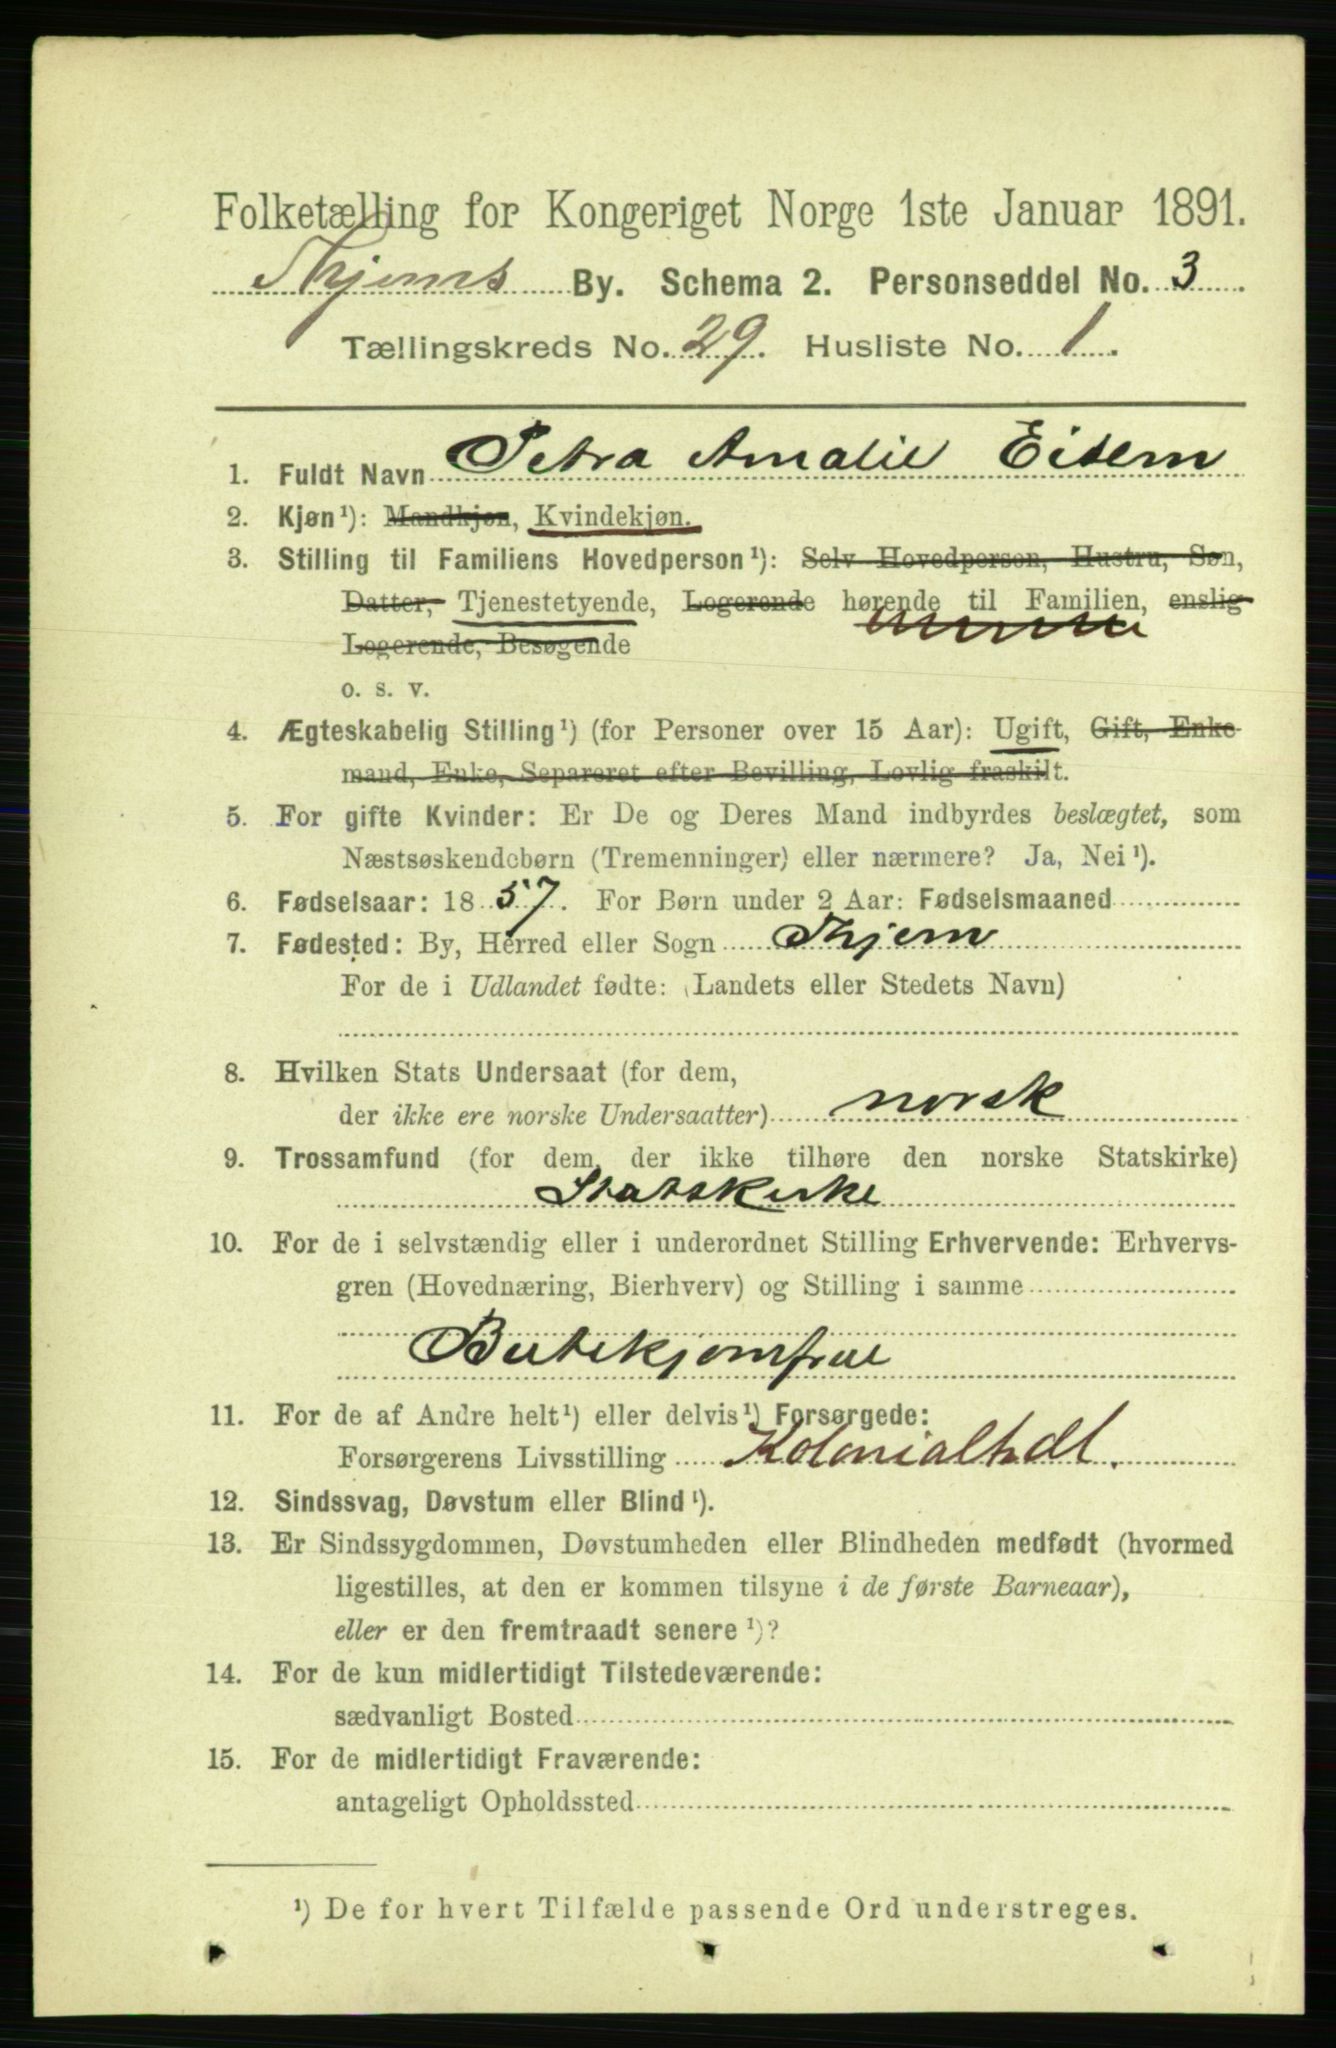 Folketælling for Kongeriget Norge 1ste Januar 1891.
Thjems By. Schema 2. Personseddel No. 3.
Tællingskreds No. 29. Husliste No. 1.
1. Fuldt Navn Petra Amalie Eidem
2. Kjøn¹): Mandkjøn, Kvindekjøn.
3. Stilling til Familiens Hovedperson¹): Selv Hovedperson, Hustru, Søn,
Datter, Tjenestetyende, Logerende hørende til Familien, enslig
Logerende, Besøgende
o. s. v.
4. Ægteskabelig Stilling¹) (for Personer over 15 Aar): Ugift, Gift, Enke-
mand, Enke, Separeret efter Bevilling, Lovlig fraskilt.
5. For gifte Kvinder: Er De og Deres Mand indbyrdes beslægtet, som
Næstsøskendebørn (Tremenninger) eller nærmere? Ja, Nei¹).
6. Fødselsaar: 1857. For Børn under 2 Aar: Fødselsmaaned
7. Fødested: By, Herred eller Sogn Thjem
For de i Udlandet fødte: (Landets eller Stedets Navn)
8. Hvilken Stats Undersaat (for dem,
der ikke ere norske Undersaatter) norsk
9. Trossamfund (for dem, der ikke tilhøre den norske Statskirke)
Statskirke
10. For de i selvstændig eller i underordnet Stilling Erhvervende: Erhvervs-
gren (Hovednæring, Bierhverv) og Stilling i samme
Butikjomfrue
11. For de af Andre helt¹) eller delvis¹) Forsørgede:
Forsørgerens Livsstilling Kolonialhdl.
12. Sindssvag, Døvstum eller Blind¹).
13. Er Sindssygdommen, Døvstumheden eller Blindheden medfødt (hvormed
ligestilles, at den er kommen tilsyne i de første Barneaar),
eller er den fremtraadt senere¹)?
14. For de kun midlertidigt Tilstedeværende:
sædvanligt Bosted
15. For de midlertidigt Fraværende:
antageligt Opholdssted
¹) De for hvert Tilfælde passende Ord understreges.